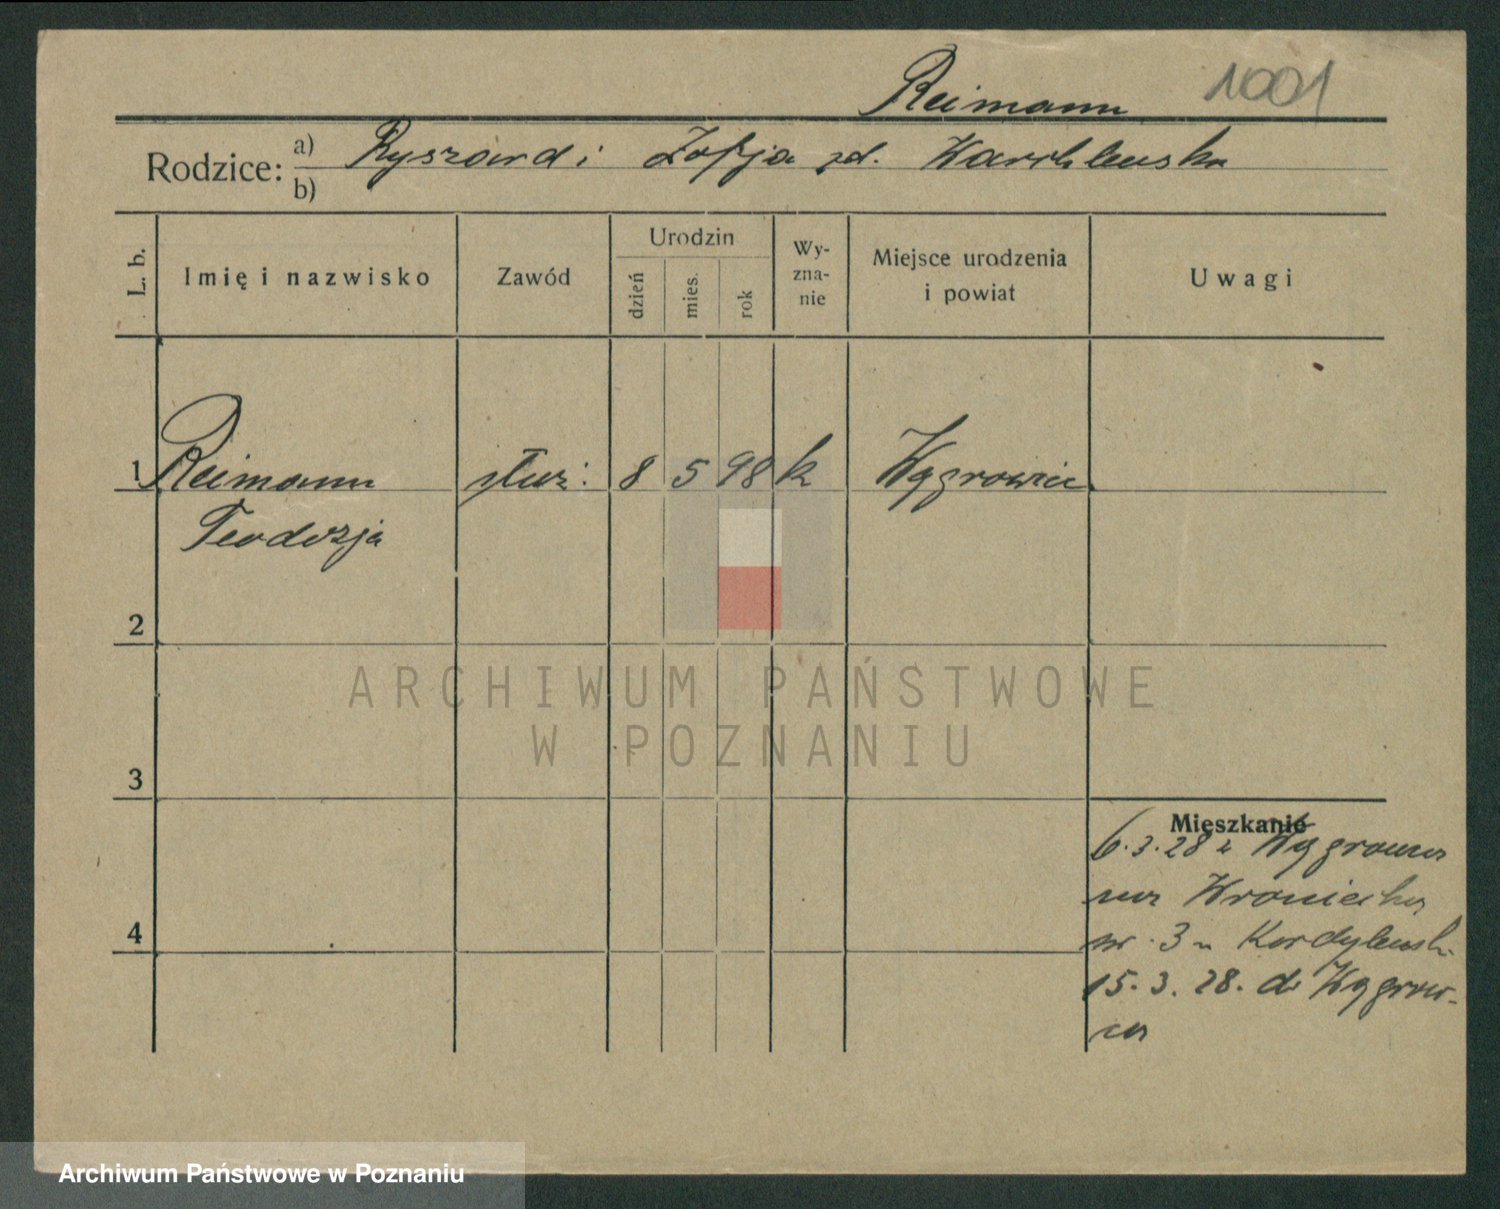 Reimann 1001
Rodzice: a) Ryszard i Zofja zd.
b)
L. b.
Imię i nazwisko
Zawód
Urodzin
dzień
mies.
rok
Wy-
zna-
nie
Miejsce urodzenia
i powiat
Uwagi
1 Reimann służ: 8 5 98 k Wągrowiec
Teodozja
2
ARCHIWUM PAŃSTWOWE
W POZNANIU
3
Mieszkanie
6.3.28 z Wągrowca
na Wroniecką
nr. 3 u Kordylewsk.
4
15.3.28. do Wągrow-
ca
Archiwum Państwowe w Poznaniu